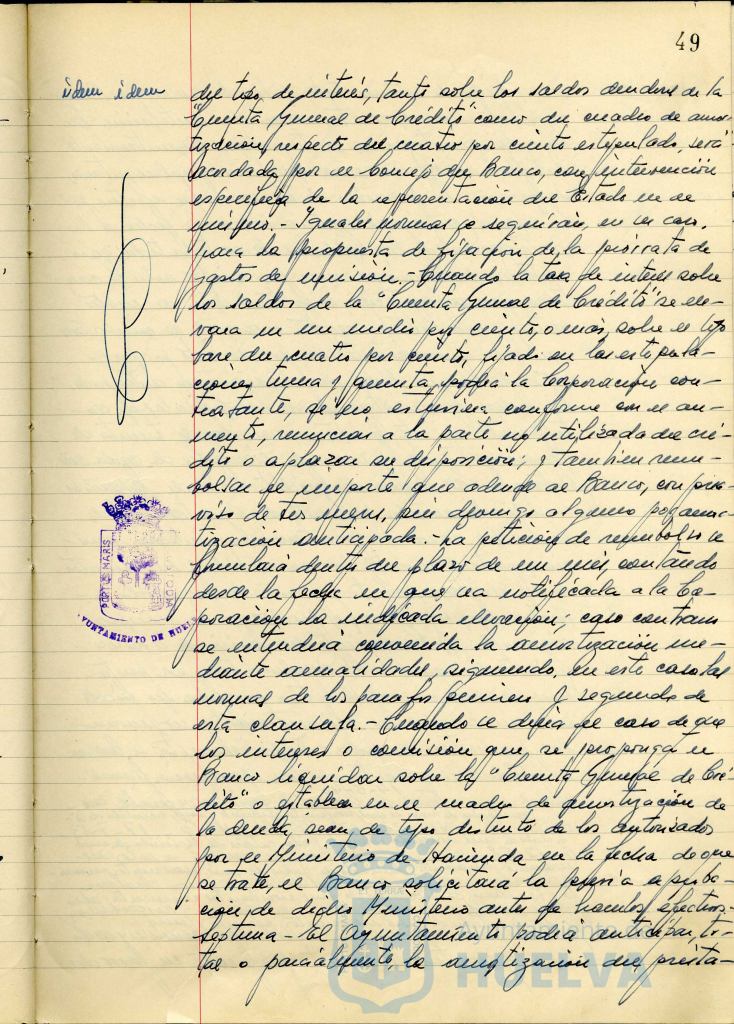 49
idem idem
del tipo, de interés, tanto sobre los saldos deudores de la
"Cuenta General de Crédito" como del cuadro de amor-
tización, respecto del cuatro por ciento estipulado, será
acordada por el Consejo del Banco, con intervención
específica de la representación del Estado en el
mismo.- Iguales normas se seguirán, en su caso,
para la propuesta de fijación de la prorrata de
gastos de emisión.- Cuando la tasa de interés sobre
los saldos de la "Cuenta General de Crédito" se ele-
vara en un medio por ciento, o más, sobre el tipo
base del cuatro por ciento, fijado en las estipula-
ciones y cuarta, podrá la Corporación con-
tratante, si no estuviera conforme con el au-
mento, renunciar a la parte no utilizada del cré-
dito o aplazar su disposición; y también reem-
bolsar el importe que adeude al Banco, con prea-
viso de tres meses, sin devengo alguno por amor-
tización anticipada.- La petición de reembolso se
formulará dentro del plazo de un mes, contando
desde la fecha en que sea notificada a la Cor-
poración la indicada elevación; caso contrario
se entenderá convenida la amortización me-
diante anualidades, siguiendo, en este caso las
normas de los parrafos primero y segundo de
esta clausula.- Cuando se diera el caso de que
los intereses o comisión que se proponga el
Banco liquidar sobre la "Cuenta General de Cré-
dito" o establecer en el cuadro de amortización de
la deuda, sean de tipo distinto de los autorizados
por el Ministerio de Hacienda en la fecha de que
se trate, el Banco solicitará la previa aproba-
ción de dicho Ministerio antes de hacerlos efectivos.-
Septima.- El Ayuntamiento podrá anticipar, to-
tal o parcialmente la amortización del présta-
PORTUS MARIS
CUSTODIA
AYUNTAMIENTO DE HUELVA
Ayuntamiento de
HUELVA